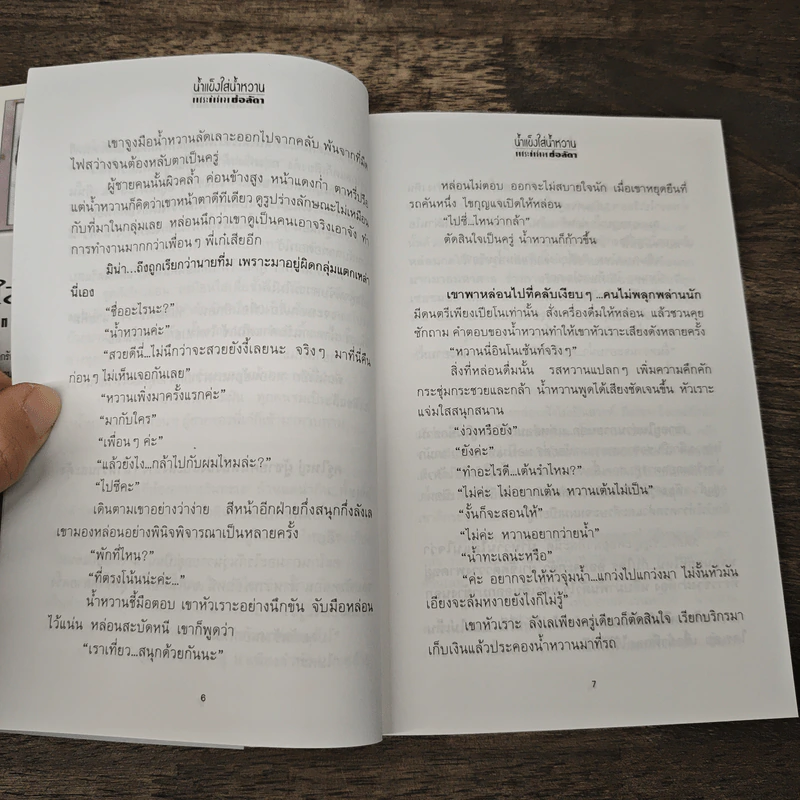 น้ำแข็งใส่น้ำหวาน
ช่อลัดา
เขาจูงมือน้ำหวานลัดเลาะออกไปจากคลับ พ้นจากที่มืด
ไฟสว่างจนต้องหลับตาเป็นครู่
ผู้ชายคนนั้นผิวคล้ำ ค่อนข้างสูง หน้าแดงก่ำ ตาหรี่ปรือ
แต่น้ำหวานก็คิดว่าเขาหน้าตาดีทีเดียว ดูรูปร่างลักษณะไม่เหมือน
กับที่มาในกลุ่มเลย หล่อนนึกว่าเขาดูเป็นคนเอาจริงเอาจัง ทำ
การทำงานมากกว่าเพื่อนๆ พี่เก๋เสียอีก
มิน่า...ถึงถูกเรียกว่านายทึ่ม เพราะมาอยู่ผิดกลุ่มแตกเหล่า
นี่เอง
“ชื่ออะไรนะ?”
“น้ำหวานค่ะ”
“สวยดีนี่...ไม่นึกว่าจะสวยยังงี้เลยนะ จริงๆ มาที่นี่คืน
ก่อนๆ ไม่เห็นเจอกันเลย”
“หวานเพิ่งมาครั้งแรกค่ะ”
“มากับใคร”
“เพื่อนๆ ค่ะ”
“แล้วยังไง...กล้าไปกับผมไหมล่ะ?”
“ไปซีคะ”
เดินตามเขาอย่างว่าง่าย สีหน้าอีกฝ่ายกึ่งสนุกกึ่งลังเล
เขามองหล่อนอย่างพินิจพิจารณาเป็นหลายครั้ง
“พักที่ไหน?”
“ที่ตรงโน้นน่ะค่ะ...”
น้ำหวานชี้มือตอบ เขาหัวเราะอย่างนึกขัน จับมือหล่อน
ไว้แน่น หล่อนสะบัดหนี เขาก็พูดว่า
“เราเที่ยว...สนุกด้วยกันนะ”
6
น้ำแข็งใส่น้ำหวาน
ช่อลัดา
หล่อนไม่ตอบ ออกจะไม่สบายใจนัก เมื่อเขาหยุดยืนที่
รถคันหนึ่ง ไขกุญแจเปิดให้หล่อน
“ไปซี่...ไหนว่ากล้า”
ตัดสินใจเป็นครู่ น้ำหวานก็ก้าวขึ้น
เขาพาหล่อนไปที่คลับเงียบๆ ...คนไม่พลุกพล่านนัก
มีดนตรีเพียงเปียโนเท่านั้น สั่งเครื่องดื่มให้หล่อน แล้วชวนคุย
ซักถาม คำตอบของน้ำหวานทำให้เขาหัวเราะเสียงดังหลายครั้ง
“หวานนี่อินโนเซ้นท์จริงๆ”
สิ่งที่หล่อนดื่มนั้น รสหวานแปลกๆ เพิ่มความคึกคัก
กระชุ่มกระชวยและกล้า น้ำหวานพูดได้เสียงชัดเจนขึ้น หัวเราะ
แจ่มใสสนุกสนาน
“ง่วงหรือยัง”
“ยังค่ะ”
“ทำอะไรดี...เต้นรำไหม?”
“ไม่ค่ะ ไม่อยากเต้น หวานเต้นไม่เป็น”
“งั้นก็จะสอนให้”
“ไม่ค่ะ หวานอยากว่ายน้ำ”
“น้ำทะเลนะหรือ”
“ค่ะ อยากจะให้หัวจุ่มน้ำ...แกว่งไปแกว่งมา ไม่งั้นหัวมัน
เอียงจะล้มหงายยังไงก็ไม่รู้”
เขาหัวเราะ ลังเลเพียงครู่เดียวก็ตัดสินใจ เรียกบริกรมา
เก็บเงินแล้วประคองน้ำหวานมาที่รถ
7